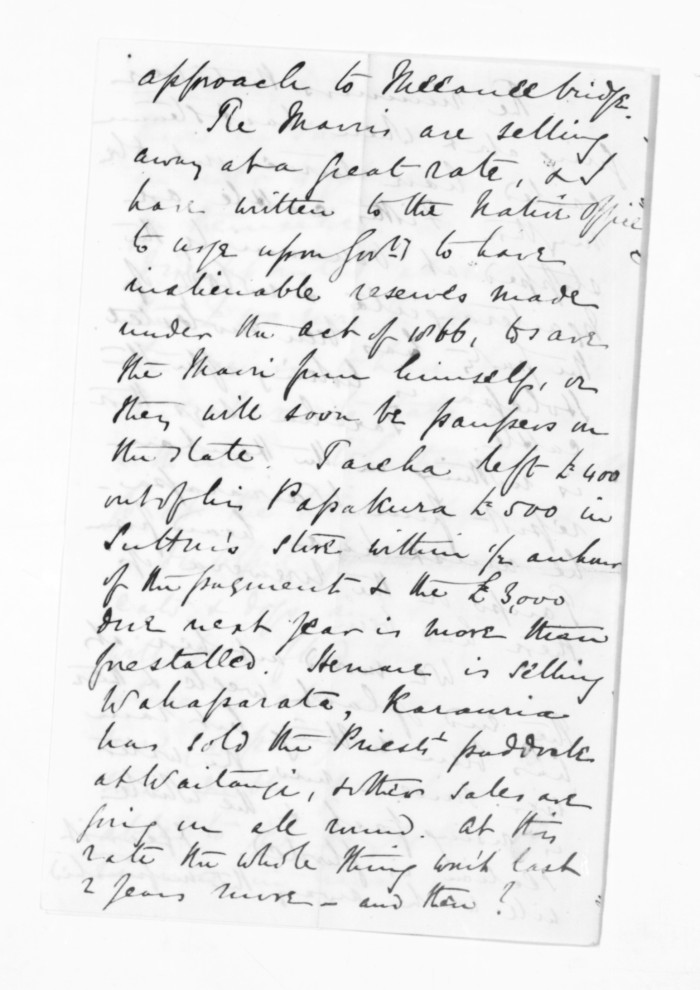 approach to Meeanee bridge.
The Maoris are selling
away at a great rate, & I
have written to the Native Office
to urge upon Govt to have
inalienable reserves made
under the act of 1866, to save
the Maori from himself, or
they will soon be paupers on
the state. Tareha left £400
out of his Papakura £500 in
Sutton's store within ½ an hour
of the payment & the £3,000
due next year is more than
forestalled. Henare is selling
Wahaparata, Karauria
has sold the Priests' paddock
at Waitangi, & other sales are
going on all round. At this
rate the whole thing won't last
2 years more – and then?